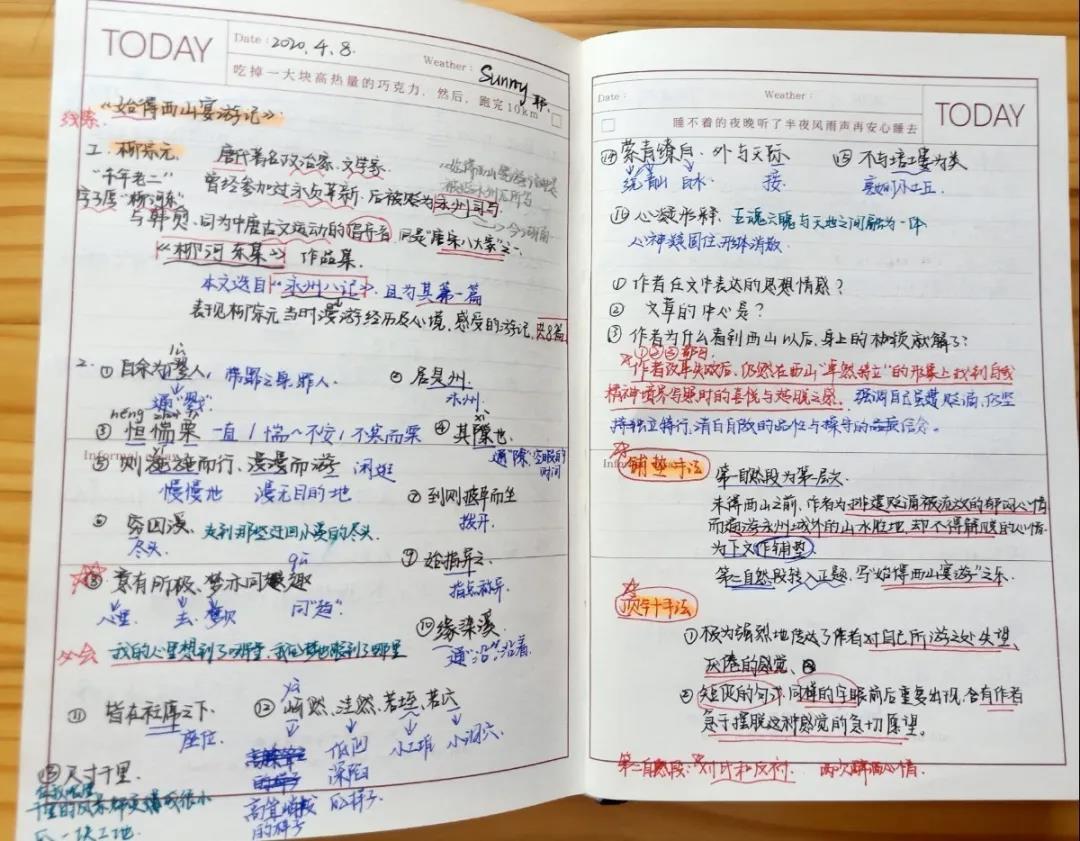 TODAY
Date: 2020.4.8.
Weather: Sunny
吃掉一大块高热量的巧克力，然后，跑完10km
《始得西山宴游记》
1. 柳宗元. 唐代著名政治家、文学家.
"千年老二" 曾经参加过永贞革新，后被贬为永州司马.
字子厚"柳河东"
与韩愈.同为中唐古文运动的倡导者，同是"唐宋八大家"之一.
《柳河东集》 作品集.
本文选自"永州八记"，且为其第一篇
表现柳宗元当时漫游经历及心境，感受的游记，共8篇
2. ①自余为僇人，带罪之身.罪人. ②居是州.
通"戮" 永州.
③恒惴栗 一直/惴~不安/不寒而栗 ④其隙也.
通"隙"，空暇的时间
⑤则施施而行、漫漫而游 闲逛
慢慢地 漫无目的地 ⑦到则披草而坐
拨开.
⑥穷回溪. 走到那些迂回小溪的尽头.
尽头. ⑨始指异之.
⑧意有所极、梦亦同趣 指点
心里. 去. 同"趋".
⑩缘染溪.
通"沿"，沿着.
我的心里想到了哪里，我的梦也
⑪皆在衽席之下. ⑫岈然、洼然、若垤、若穴
座位. 低凹 小土堆 小洞穴
深陷
高耸 的样子
的样子
⑬尺寸千里.
Date:
Weather:
TODAY
睡不着的夜晚听了半夜风雨声再安心睡去
⑭萦青缭白、外与天际 ⑮不与培塿为类
绕青山 白水 接.
⑯心凝形释.
心神凝固住，形体消散.
①作者在文中表达的思想情感？
②文章的中心是？
③作者为什么看到西山以后，身上的枷锁就解了？
作者改革失败后，仍然在西山"卓然特立"的形象上找到自我
精神境界 的喜悦与超脱之感. 强调自己虽遭贬谪，仍坚
持独立特行，清白自敬的品性与操守的 信念.
铺垫手法 第一自然段为第一层次.
未得西山之前，作者为排遣贬谪被流放的郁闷心情
而遍游永州城外的山水胜地，却不得解脱的心情.
为下文作铺垫
第二自然段转入正题，写"始得西山宴游"之乐.
顶针手法
①极为强烈地传达了作者对自己所游之处失望、
厌倦的感觉.
②短促的句式，同样的字眼前后重复出现，含有作者
急于摆脱这种感觉的急切愿望.
第二自然段：对比和反衬. 两次醉酒心情.